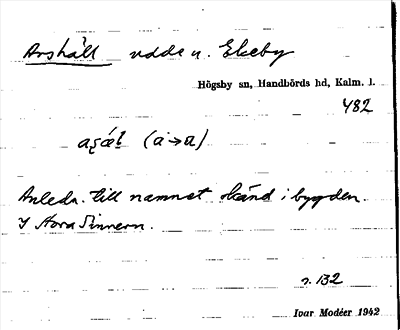 Arshäll udde n. Ekeby
Högsby sn, Handbörds hd, Kalm. l.
482
Anledn. till namnet okänd i bygden.
I Stora Sinnern.
s. 132
Ivar Modéer 1942